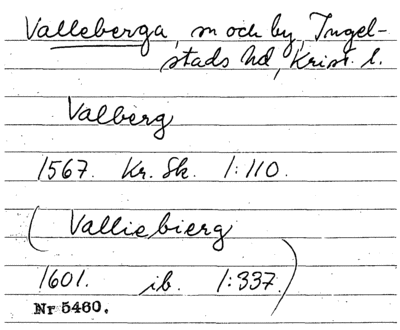 Valleberga, sn och by, Ingel-
stads hd, Krist. l.
Valberg
1567. Kr. Sk. 1:110.
(Valliebierg
1601. ib. 1:337.)
Nr 5460.